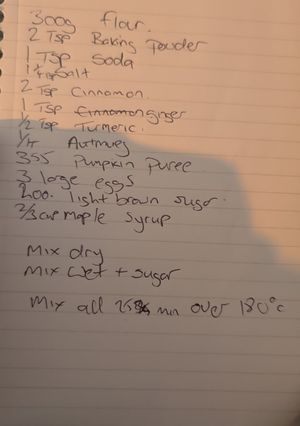 300g flour.
2 Tsp Baking Powder
1 Tsp Soda
1 Tsp Salt
2 Tsp Cinnamon.
1 Tsp Cinnamon ginger
1/2 Tsp Turmeric.
1/4 Nutmeg
355 Pumpkin Puree
3 large eggs
200. light brown sugar.
2/3 cup maple Syrup
Mix dry
Mix wet + sugar
Mix all 25 min over 180°c